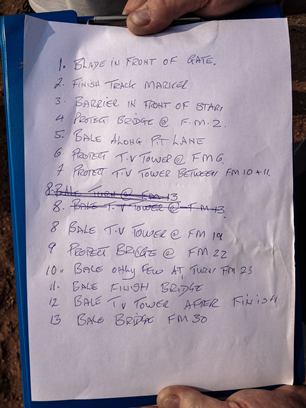 1. BLADE IN FRONT OF GATE.
2. FINISH TRACK MARKER
3. BARRIER IN FRONT OF START
4 PROTECT BRIDGE @ F.M.2.
5. BALE ALONG PIT LANE
6 PROTECT T.V TOWER @ FM6
7 PROTECT T.V TOWER BETWEEN FM 10+11.
8. BALE TURN @ FM 13
8. BALE T.V TOWER @ FM 13.
8 BALE T.V TOWER @ FM 19
9 PROTECT BRIDGE @ FM 22
10. BALE ONLY FEW AT TURN FM 23
11. BALE FINISH BRIDGE
12 BALE T.V TOWER AFTER FINISH
13 BALE BRIDGE FM 30